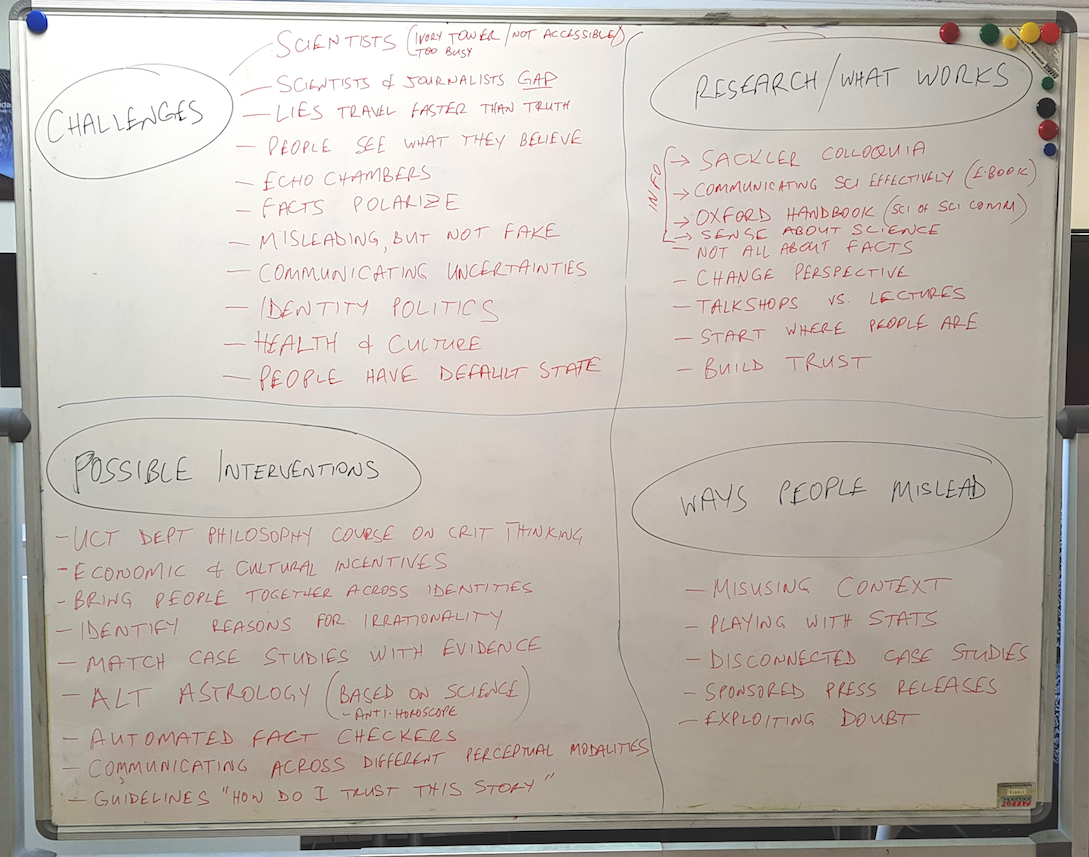 CHALLENGES
SCIENTISTS (IVORY TOWER / NOT ACCESSIBLE/
TOO BUSY)
— SCIENTISTS & JOURNALISTS GAP
— LIES TRAVEL FASTER THAN TRUTH
— PEOPLE SEE WHAT THEY BELIEVE
— ECHO CHAMBERS
— FACTS POLARIZE
— MISLEADING, BUT NOT FAKE
— COMMUNICATING UNCERTAINTIES
— IDENTITY POLITICS
— HEALTH & CULTURE
— PEOPLE HAVE DEFAULT STATE
RESEARCH/WHAT WORKS
INFO
→ SACKLER COLLOQUIA
→ COMMUNICATING SCI EFFECTIVELY (E-BOOK)
→ OXFORD HANDBOOK (SCI OF SCI COMM)
→ SENSE ABOUT SCIENCE
— NOT ALL ABOUT FACTS
— CHANGE PERSPECTIVE
— TALKSHOPS VS. LECTURES
— START WHERE PEOPLE ARE
— BUILD TRUST
POSSIBLE INTERVENTIONS
- UCT DEPT PHILOSOPHY COURSE ON CRIT THINKING
- ECONOMIC & CULTURAL INCENTIVES
- BRING PEOPLE TOGETHER ACROSS IDENTITIES
- IDENTIFY REASONS FOR IRRATIONALITY
— MATCH CASE STUDIES WITH EVIDENCE
— ALT ASTROLOGY (BASED ON SCIENCE)
- ANTI-HOROSCOPE
— AUTOMATED FACT CHECKERS
— COMMUNICATING ACROSS DIFFERENT PERCEPTUAL MODALITIES
— GUIDELINES "HOW DO I TRUST THIS STORY"
WAYS PEOPLE MISLEAD
— MISUSING CONTEXT
— PLAYING WITH STATS
— DISCONNECTED CASE STUDIES
— SPONSORED PRESS RELEASES
— EXPLOITING DOUBT
PARROT